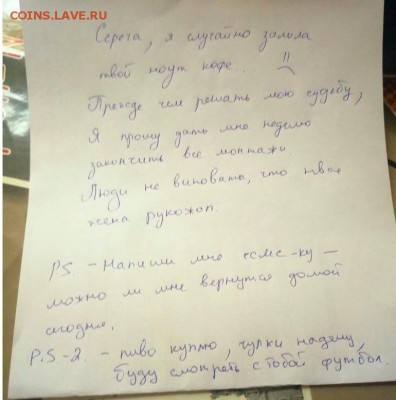 COINS.LAVE.RU
Серега, я случайно залила
твой ноут кофе..
Прежде чем решать мою судьбу,
Я прошу дать мне неделю
закончить все монтажи
Люди не виновата, что твоя
жена рукожоп.
P.S - Напиши мне смс-ку —
можно ли мне вернутся домой
сегодня.
P.S-2. - пиво куплю, чулки надену,
буду смотреть с тобой футбол.